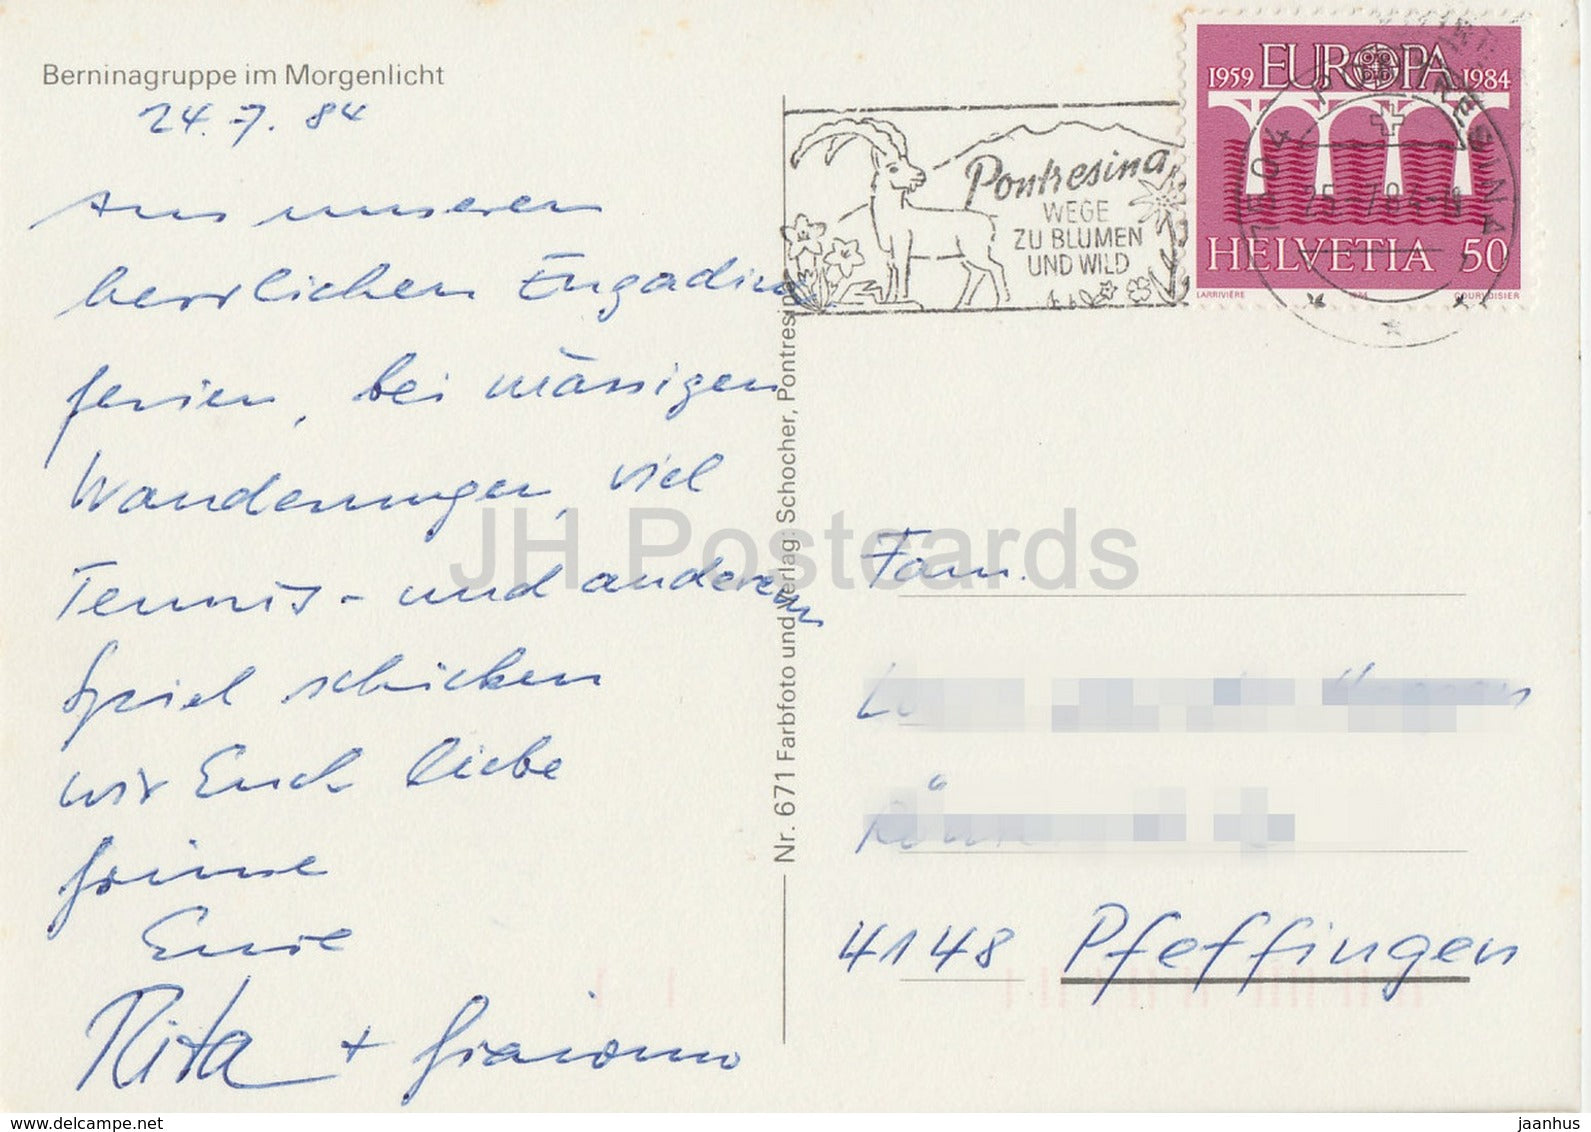 Berninagruppe im Morgenlicht
24.7.84
Aus unseren
herrlichen Engadin
ferien, bei mässigen
Wanderungen, viel
Tennis- und anderem
Spiel schicken
wir Euch liebe
Grüsse
Eure
Rita + Giacomo
Nr. 671 Farbfoto und Verlag: Schocher, Pontresina
Pontresina
WEGE
ZU BLUMEN
UND WILD
1959 EUROPA 1984
HELVETIA 50
LARRIVIÈRE 1984 COURVOISIER
7504 PONTRESINA
25.-7.84-
Fam.
4148 Pfeffingen
JH Postcards
www.delcampe.net
jaanhus